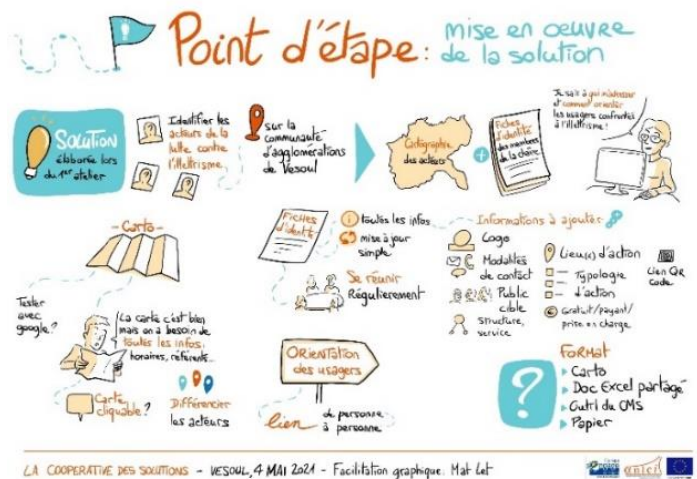 Point d'étape:
mise en oeuvre
de la solution
SOLUTION
élaborée lors
du 1er atelier
Identifier les
acteurs de la
lutte contre
l'illettrisme
sur la
communauté
d'agglomérations
de Vesoul
Cartographie
des acteurs
+
Fiches
d'identité
des membres
de la chaîne
Je sais à qui m'adresser
et comment orienter
les usagers confrontés
à l'illettrisme!
- Carto -
Tester
avec
google?
La carte c'est bien
mais on a besoin de
toutes les infos:
horaires, référents...
Carte
cliquable?
Différencier
les acteurs
Fiches
d'identité
toutes les infos
mise à jour
simple
Se réunir
Régulièrement
Informations à ajouter
Logo
Modalités
de contact
Public
cible
structure,
service
Lieu(x) d'action
Typologie
d'action
Gratuit/payant/
prise en charge
Lien QR
code
ORIENTATION
des usagers
lien
de personne
à personne
?
FORMAT
Carto
Doc Excel partagé
Outil du CMS
Papier
LA COOPERATIVE DES SOLUTIONS - VESOUL, 4 MAI 2021 - Facilitation graphique: Mat Let